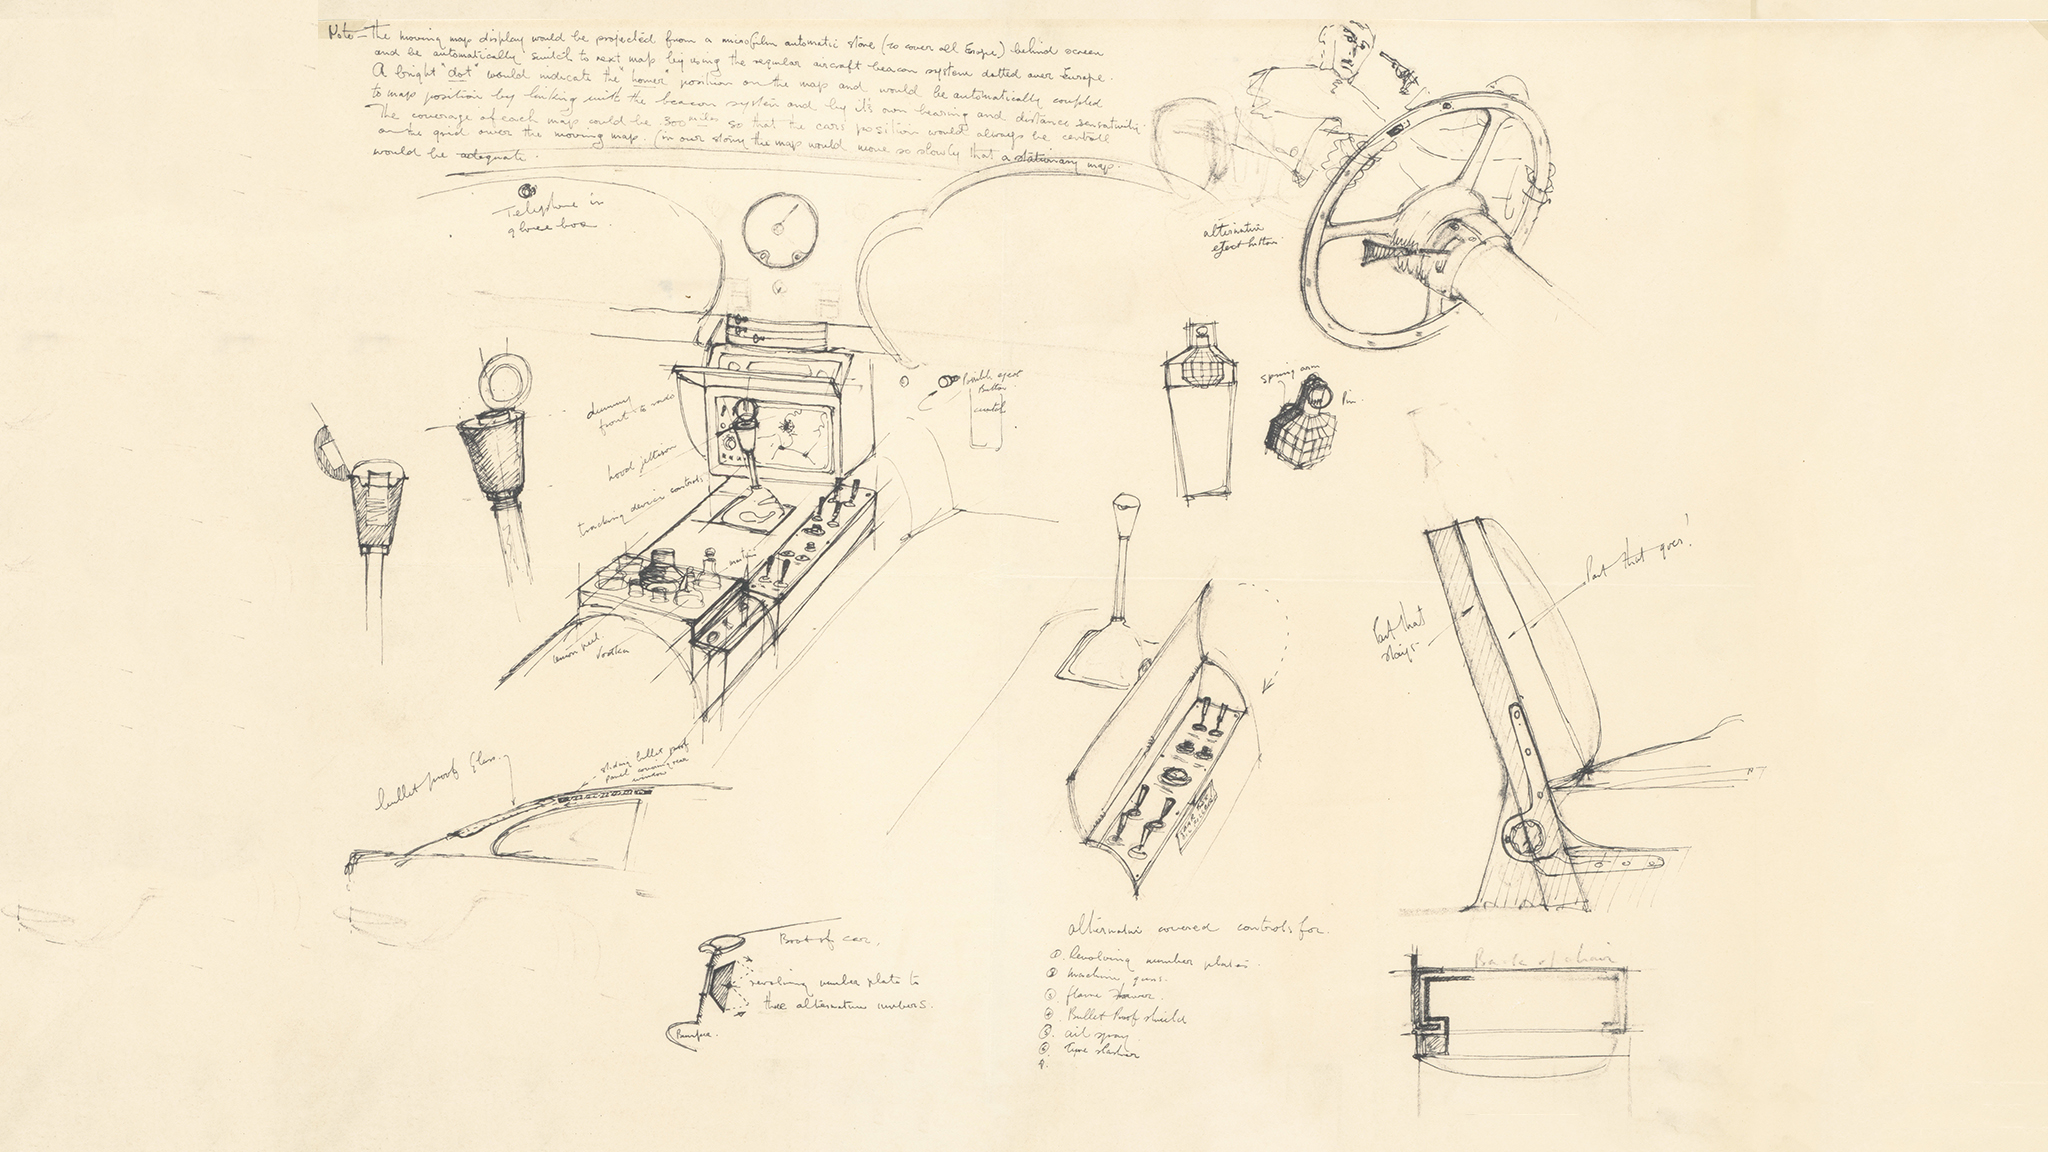 Note - The moving map display would be projected from a microfilm automatic store (to cover all Europe) behind screen
and be automatically switch to next map by using the regular aircraft beacon system dotted over Europe.
A bright "dot" would indicate the "homer" position on the map and would be automatically coupled
to map position by linking with the beacon system and by it's own bearing and distance sensativity.
The coverage of each map could be 300 miles so that the cars position would always be centrall
on the grid over the moving map. (in our story the map would move so slowly that a stationary map
would be adequate.
Telephone in
glove box
alternative
eject button
Possible eject
Button
spring arm
Pin
dummy
front to radio
hood
tracking device controls
lemon peel
Vodka
Part that goes!
Part that
stays
bullet proof Glass
sliding bullet proof
panel covering rear
window
Boot of car.
revolving number plate to
three alternative numbers.
Bumper.
alternative covered controls for.
1. Revolving number plates.
2 machine guns.
3 flame thrower.
4 Bullet Proof shield
5. oil spray
6 Tyre slasher
7.
Back of chair